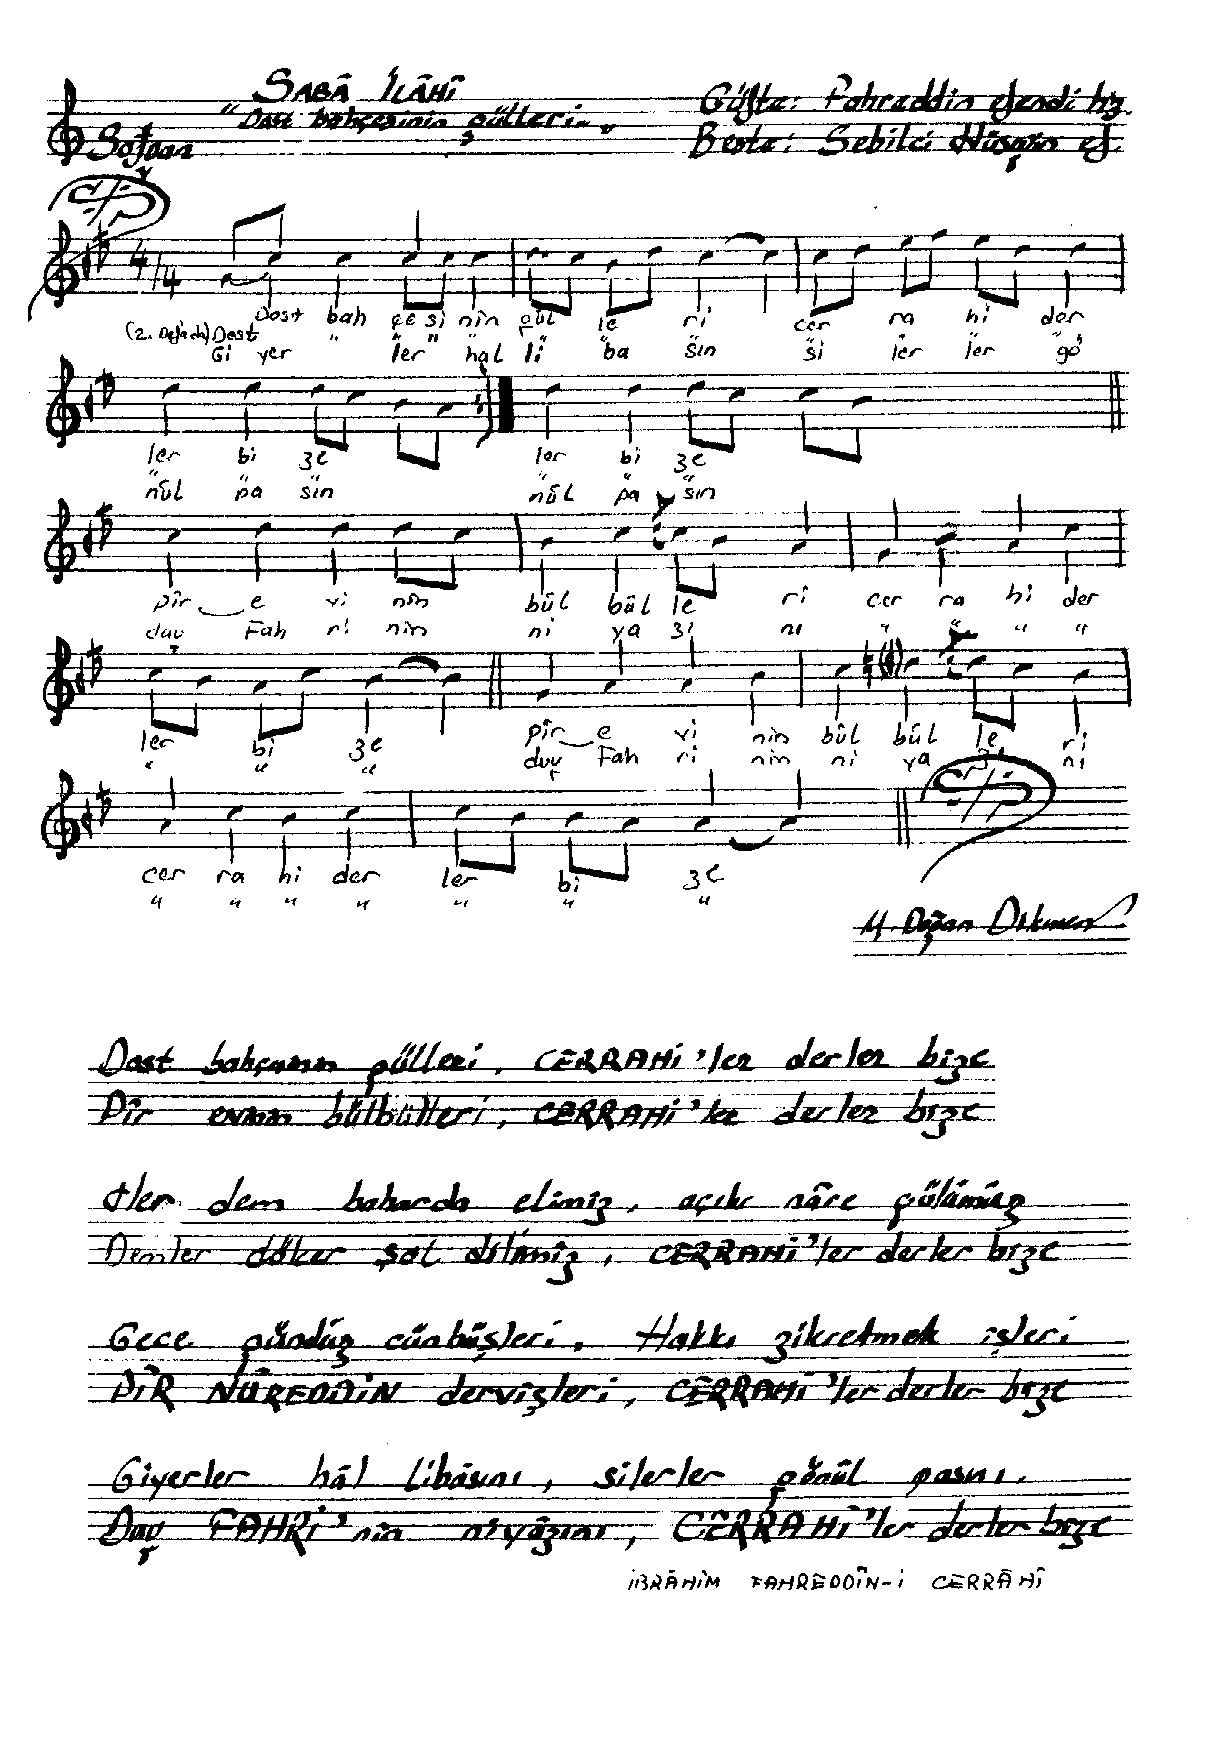 SABÂ İLÂHÎ
"Dost bahçesinin gülleri"
Güfte: Fahreddin efendi hz.
Sofyan
Beste: Sebilci Hüseyin ef.
4/4
Dost bah çe si nin gül le ri cer ra hi der
(2. Defada) Dost " " " " " " " " " "
Gi yer ler hal li ba sın si ler ler gö
ler bi ze ler bi ze
" " " " " "
nül pa sın nül pa sın
pîr e vi nin bül bül le ri cer ra hi der
duy Fah ri nin ni ya zi ni " " " "
ler bi ze pîr e vi nin bül bül le ri
" " " duy Fah ri nin ni ya zi ni
cer ra hi der ler bi ze
" " " " " " "
M. Doğan Dikmen
Dost bahçesinin gülleri, CERRAHİ'ler derler bize
Pîr evinin bülbülleri, CERRAHİ'ler derler bize
Her dem baharda elimiz, açık nâre gülümüz
Demler döker şol dilimiz, CERRAHİ'ler derler bize
Gece gündüz cünbüşleri, Hakkı zikretmek işleri
PİR NÛREDDİN dervişleri, CERRAHİ'ler derler bize
Giyerler hâl libâsını, silerler gönül pasını.
Duy FAHRİ'nin niyâzını, CERRAHİ'ler derler bize
İBRÂHİM FAHREDDÎN-İ CERRÂHÎ